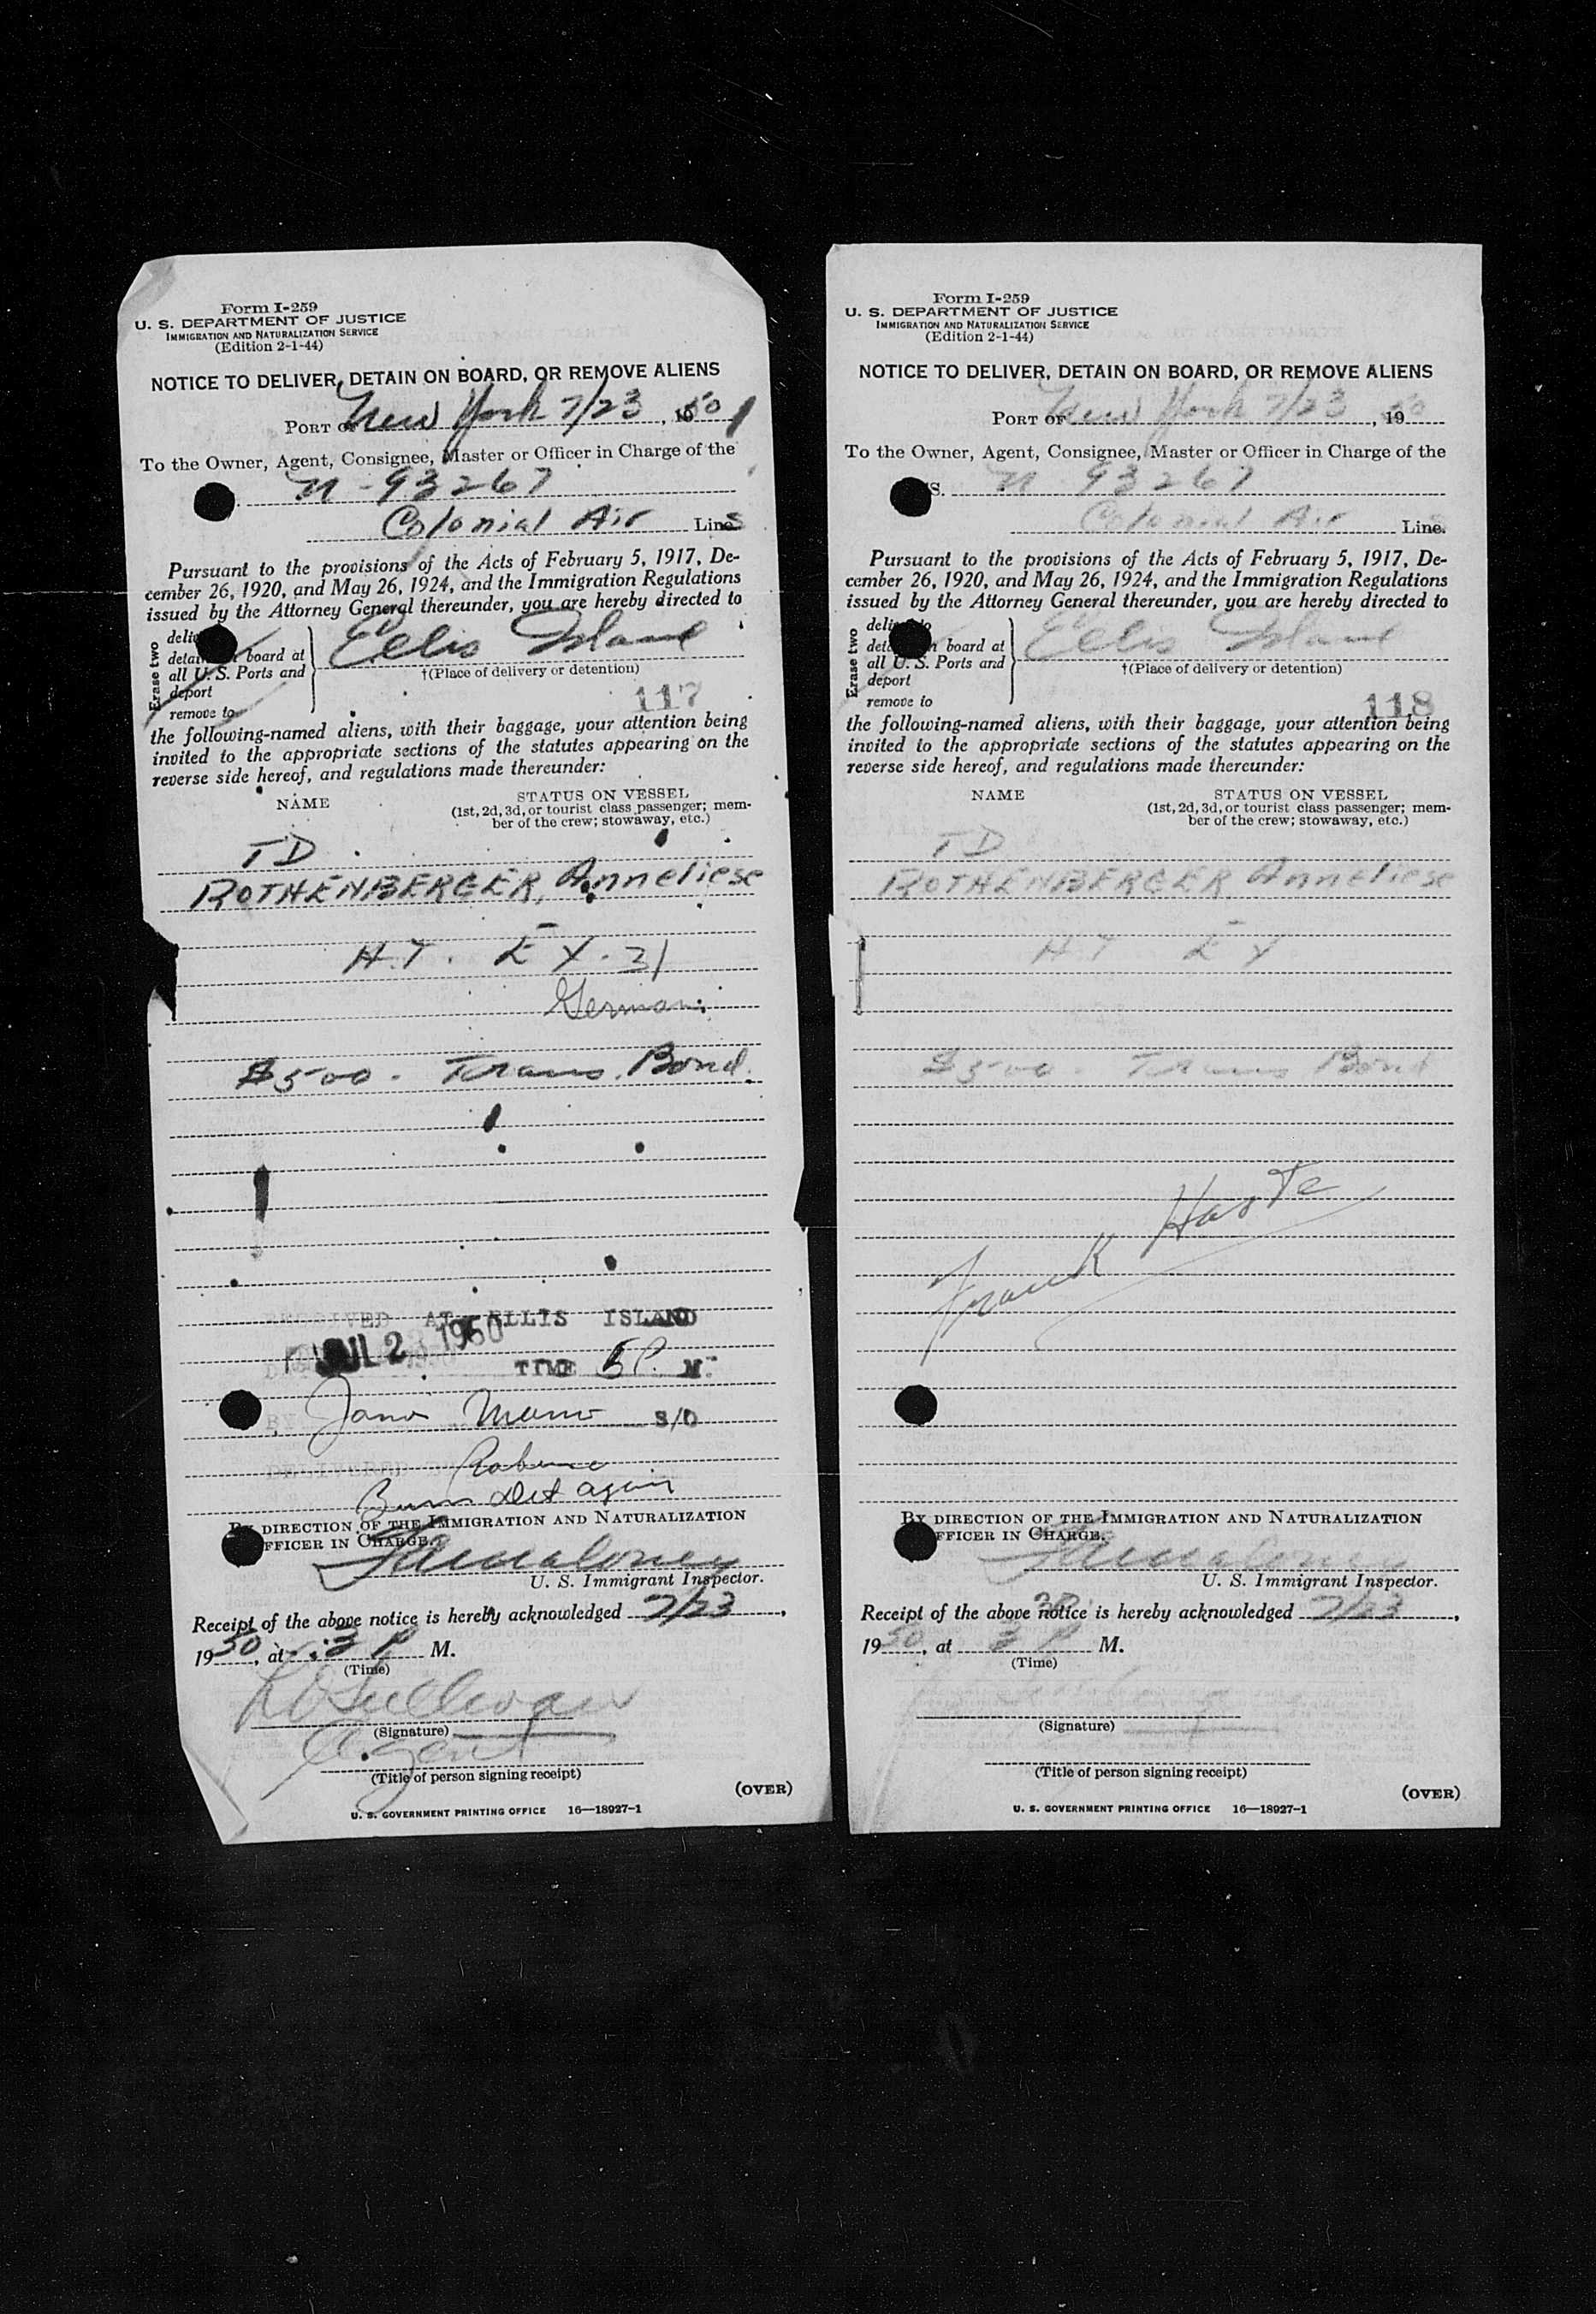 Form I-259
U. S. DEPARTMENT OF JUSTICE
IMMIGRATION AND NATURALIZATION SERVICE
(Edition 2-1-44)
NOTICE TO DELIVER, DETAIN ON BOARD, OR REMOVE ALIENS
PORT OF New York 7/23, 1950
To the Owner, Agent, Consignee, Master or Officer in Charge of the
N-93267
Colonial Air Lines
Pursuant to the provisions of the Acts of February 5, 1917, De-
cember 26, 1920, and May 26, 1924, and the Immigration Regulations
issued by the Attorney General thereunder, you are hereby directed to
Erase two
board at
all U. S. Ports and
deport
remove to
Ellis Island
†(Place of delivery or detention)
117
the following-named aliens, with their baggage, your attention being
invited to the appropriate sections of the statutes appearing on the
reverse side hereof, and regulations made thereunder:
NAME STATUS ON VESSEL
(1st, 2d, 3d, or tourist class passenger; mem-
ber of the crew; stowaway, etc.)
TD
ROTHENBERGER, Anneliese
EX. 31
German
$500. Trans. Bond.
RECEIVED AT ELLIS ISLAND
JUL 23 1950
TIME 5 P. M.
BY S/O
DELIVERED
BY DIRECTION OF THE IMMIGRATION AND NATURALIZATION
OFFICER IN CHARGE.
U. S. Immigrant Inspector.
Receipt of the above notice is hereby acknowledged 7/23,
1950, at 3 P M.
(Time)
(Signature)
Agent
(Title of person signing receipt)
(OVER)
U. S. GOVERNMENT PRINTING OFFICE 16—18927-1
Form I-259
U. S. DEPARTMENT OF JUSTICE
IMMIGRATION AND NATURALIZATION SERVICE
(Edition 2-1-44)
NOTICE TO DELIVER, DETAIN ON BOARD, OR REMOVE ALIENS
PORT OF New York 7/23, 1950
To the Owner, Agent, Consignee, Master or Officer in Charge of the
N 93267
Colonial Air Line.
Pursuant to the provisions of the Acts of February 5, 1917, De-
cember 26, 1920, and May 26, 1924, and the Immigration Regulations
issued by the Attorney General thereunder, you are hereby directed to
Erase two
board at
all U. S. Ports and
deport
remove to
Ellis Island
†(Place of delivery or detention)
118
the following-named aliens, with their baggage, your attention being
invited to the appropriate sections of the statutes appearing on the
reverse side hereof, and regulations made thereunder:
NAME STATUS ON VESSEL
(1st, 2d, 3d, or tourist class passenger; mem-
ber of the crew; stowaway, etc.)
TD
ROTHENBERGER, Anneliese
EX
$500. Trans Bond
Frank Haste
BY DIRECTION OF THE IMMIGRATION AND NATURALIZATION
OFFICER IN CHARGE.
U. S. Immigrant Inspector.
Receipt of the above notice is hereby acknowledged 7/23,
1950, at 3 P M.
(Time)
(Signature)
(Title of person signing receipt)
(OVER)
U. S. GOVERNMENT PRINTING OFFICE 16—18927-1